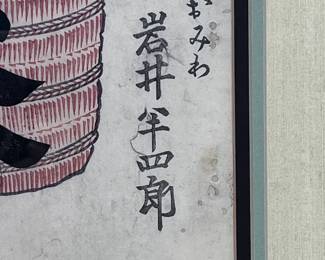 おみわ
岩井半四郎